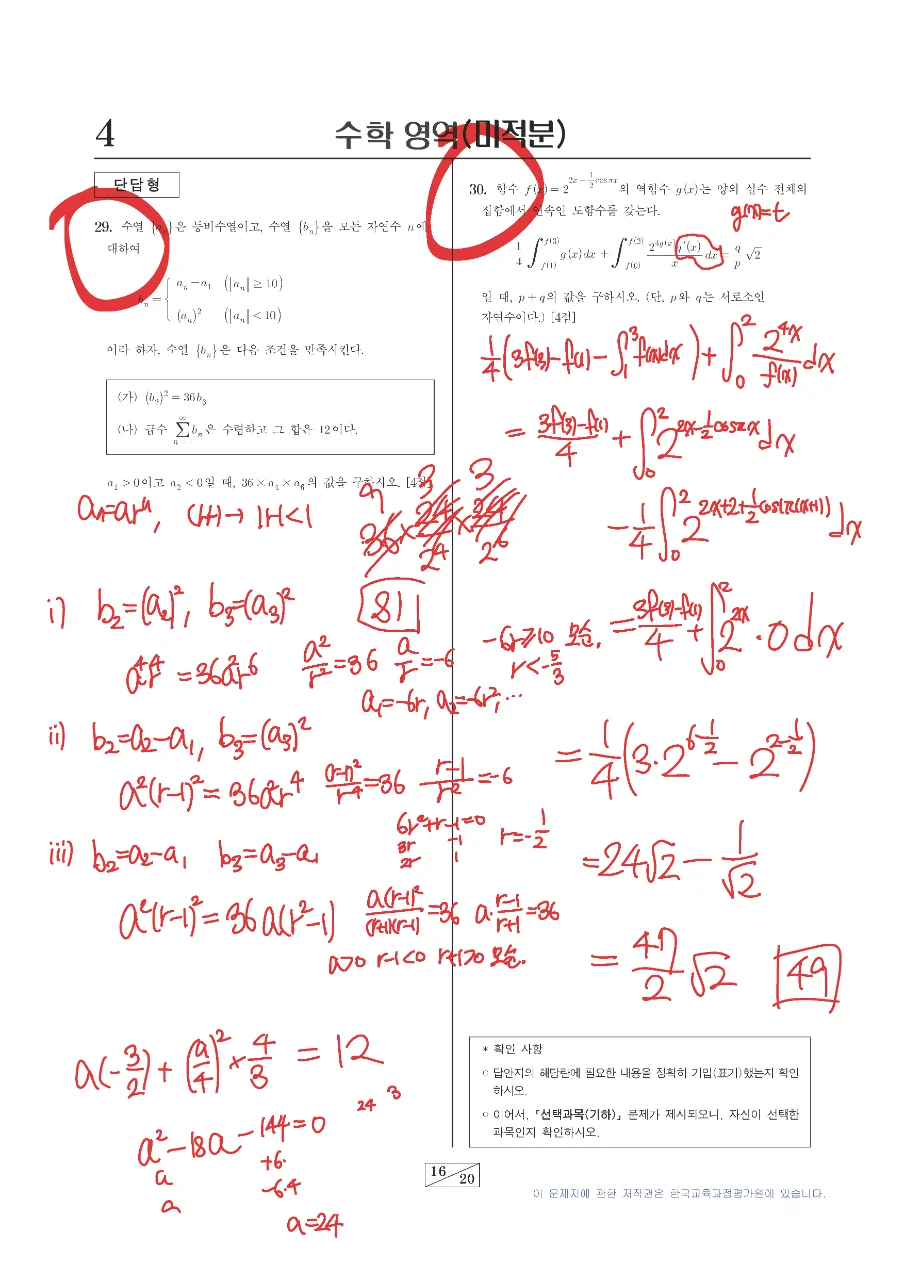 4
수학 영역(미적분)
단답형
29. 수열 {aₙ}은 등비수열이고, 수열 {bₙ}을 모든 자연수 n에
대하여
bₙ = { aₙ − a₁ (|aₙ| ≥ 10)
(aₙ)² (|aₙ| < 10)
이라 하자. 수열 {bₙ}은 다음 조건을 만족시킨다.
(가) (b₂)² = 36b₃
(나) 급수 ∑_{n=1}^{∞} bₙ은 수렴하고 그 합은 12이다.
a₁ > 0이고 a₂ < 0일 때, 36 × a₁ × a₆의 값을 구하시오. [4점]
aₙ=arⁿ, (나) → |r|<1
9 3 3
36 × 24/2⁴ × 24/2⁶
81
i) b₂=(a₂)², b₃=(a₃)²
a⁴r⁴ = 36a²r⁶ a²/r² = 36 a/r = −6
a₁=−6r, a₂=−6r², ⋯
−6r≥10 모순.
r<−5/3
ii) b₂=a₂−a₁, b₃=(a₃)²
a²(r−1)² = 36a²r⁴ (r−1)²/r⁴ = 36 (r−1)/r² = −6
6r²+r−1=0
3r −1
2r 1
r=−1/2
iii) b₂=a₂−a₁ b₃=a₃−a₁
a²(r−1)² = 36a(r²−1) a(r−1)²/(r+1)(r−1) = 36 a·(r−1)/(r+1) = 36
a>0 r−1<0 r+1>0 모순.
a(−3/2) + (a/4)² × 4/3 = 12
24 3
a²−18a−144=0
a +6·
a −6·4
a=24
30. 함수 f(x) = 2^{2x − ½cosπx}의 역함수 g(x)는 양의 실수 전체의
집합에서 연속인 도함수를 갖는다.
g(x)=t
1/4 ∫_{f(1)}^{f(3)} g(x)dx + ∫_{f(0)}^{f(2)} 2^{4g(x)}g′(x)/x dx = q/p √2
일 때, p + q의 값을 구하시오. (단, p와 q는 서로소인
자연수이다.) [4점]
1/4(3f(3)−f(1)−∫₁³f(x)dx) + ∫₀² 2^{4x}/f(x) dx
= (3f(3)−f(1))/4 + ∫₀² 2^{2x+½cosπx}dx
−1/4 ∫₀² 2^{2x+2+½cos(π(x+1))}dx
= (3f(3)−f(1))/4 + ∫₀² 2^{2x}·0dx
= 1/4(3·2^{6−½} − 2^{2−½})
=24√2 − 1/√2
= 47/2 √2 49
* 확인 사항
○ 답안지의 해당란에 필요한 내용을 정확히 기입(표기)했는지 확인
하시오.
○ 이어서, 「선택과목(기하)」 문제가 제시되오니, 자신이 선택한
과목인지 확인하시오.
16
20
이 문제지에 관한 저작권은 한국교육과정평가원에 있습니다.